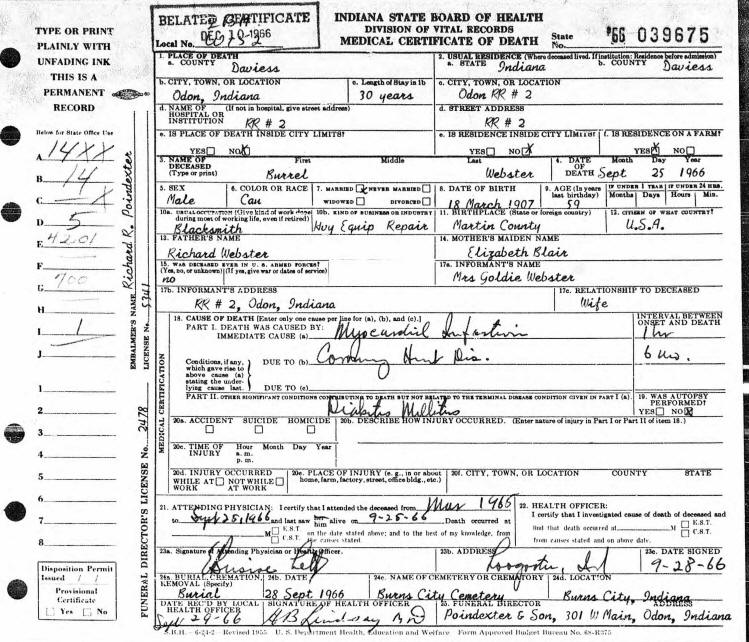 BELATED CERTIFICATE
DEC 10 1966
Local No.
INDIANA STATE BOARD OF HEALTH
DIVISION OF VITAL RECORDS
MEDICAL CERTIFICATE OF DEATH
State No. '66 039675
TYPE OR PRINT
PLAINLY WITH
UNFADING INK
THIS IS A
PERMANENT
RECORD
Below for State Office Use
A. 14XX
B. 14
C. X
D. 5
E. 4201
F.
G. 700
H.
I. 1
J.
1.
2.
3.
4.
5.
6.
7.
8.
Disposition Permit
Issued 1 1
Provisional
Certificate
Yes No
EMBALMER'S NAME Richard R. Poindexter LICENSE No. 5341
FUNERAL DIRECTOR'S LICENSE No. 2478
1. PLACE OF DEATH
a. COUNTY
Daviess
2. USUAL RESIDENCE (Where deceased lived. If institution: Residence before admission)
a. STATE b. COUNTY
Indiana Daviess
b. CITY, TOWN, OR LOCATION c. Length of Stay in 1b
Odon, Indiana 30 years
c. CITY, TOWN, OR LOCATION
Odon RR # 2
d. NAME OF HOSPITAL OR INSTITUTION (If not in hospital, give street address)
RR # 2
d. STREET ADDRESS
RR # 2
e. IS PLACE OF DEATH INSIDE CITY LIMITS?
YES NO X
e. IS RESIDENCE INSIDE CITY LIMITS? f. IS RESIDENCE ON A FARM?
YES NO X YES X NO
3. NAME OF DECEASED (Type or print) First Middle Last
Burrel Webster
4. DATE OF DEATH Month Day Year
Sept 25 1966
5. SEX 6. COLOR OR RACE 7. MARRIED X NEVER MARRIED WIDOWED DIVORCED
Male Cau
8. DATE OF BIRTH 9. AGE (In years last birthday) IF UNDER 1 YEAR IF UNDER 24 HRS.
Months Days Hours Min.
18 March 1907 59
10a. USUAL OCCUPATION (Give kind of work done during most of working life, even if retired) 10b. KIND OF BUSINESS OR INDUSTRY
Blacksmith Hvy Equip Repair
11. BIRTHPLACE (State or foreign country) 12. CITIZEN OF WHAT COUNTRY?
Martin County U.S.A.
13. FATHER'S NAME
Richard Webster
14. MOTHER'S MAIDEN NAME
Elizabeth Blair
15. WAS DECEASED EVER IN U. S. ARMED FORCES?
(Yes, no, or unknown) (If yes, give war or dates of service)
no
17a. INFORMANT'S NAME
Mrs Goldie Webster
17b. INFORMANT'S ADDRESS
RR # 2, Odon, Indiana
17c. RELATIONSHIP TO DECEASED
Wife
MEDICAL CERTIFICATION
18. CAUSE OF DEATH [Enter only one cause per line for (a), (b), and (c).]
INTERVAL BETWEEN ONSET AND DEATH
PART I. DEATH WAS CAUSED BY:
IMMEDIATE CAUSE (a) Myocardial Infartion 1 hr
Conditions, if any, which gave rise to above cause (a) stating the underlying cause last.
DUE TO (b) Coronary Hrt Dis. 6 mo.
DUE TO (c)
PART II. OTHER SIGNIFICANT CONDITIONS CONTRIBUTING TO DEATH BUT NOT RELATED TO THE TERMINAL DISEASE CONDITION GIVEN IN PART I (a).
Diabetis Millitus
19. WAS AUTOPSY PERFORMED?
YES NO X
20a. ACCIDENT SUICIDE HOMICIDE
20b. DESCRIBE HOW INJURY OCCURRED. (Enter nature of injury in Part I or Part II of item 18.)
20c. TIME OF INJURY Hour a.m. p.m. Month Day Year
20d. INJURY OCCURRED WHILE AT WORK NOT WHILE AT WORK
20e. PLACE OF INJURY (e. g., in or about home, farm, factory, street, office bldg., etc.)
20f. CITY, TOWN, OR LOCATION COUNTY STATE
21. ATTENDING PHYSICIAN: I certify that I attended the deceased from Mar 1965
to Sept 25, 1966 and last saw her him alive on 9-25-66. Death occurred at
M E.S.T. C.S.T. on the date stated above; and to the best of my knowledge, from the causes stated.
22. HEALTH OFFICER:
I certify that I investigated cause of death of deceased and find that death occurred at M E.S.T. C.S.T.
from causes stated and on above date.
23a. Signature of Attending Physician or Health Officer.
23b. ADDRESS
Loogootee, Ind
23c. DATE SIGNED
9-28-66
24a. BURIAL, CREMATION, REMOVAL (Specify) 24b. DATE
Burial 28 Sept 1966
24c. NAME OF CEMETERY OR CREMATORY
Burns City Cemetery
24d. LOCATION
Burns City, Indiana
DATE REC'D BY LOCAL HEALTH OFFICER
Sept 29-66
SIGNATURE OF HEALTH OFFICER
AB Lindsay MD
25. FUNERAL DIRECTOR ADDRESS
Poindexter & Son, 301 W Main, Odon, Indiana
S.B.H.—6-24-2 Revised 1955 U. S. Department Health, Education and Welfare Form Approved Budget Bureau No. 68-R375